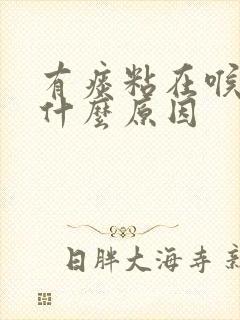 有痰粘在喉
什麼原因
日胖大海寺